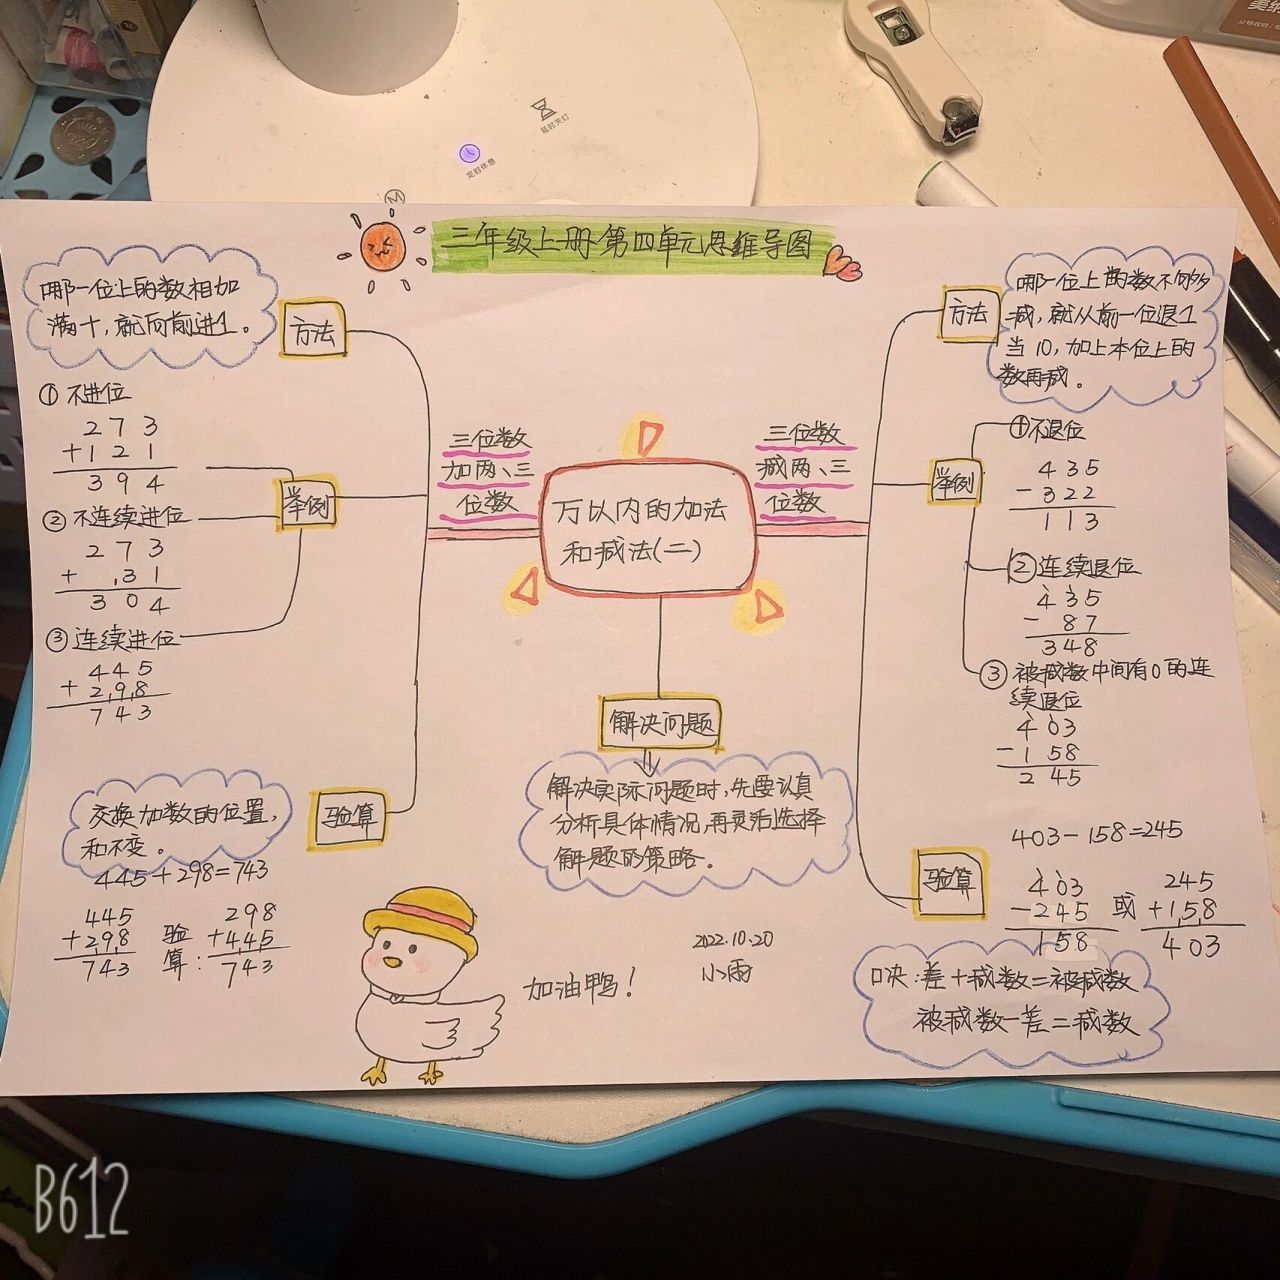 延时关灯
定时休息
三年级上册第四单元思维导图
哪一位上的数相加
满十，就向前进1。
方法
① 不进位
273
+121
394
举例
② 不连续进位
273
+ 31
304
③ 连续进位
445
+298
743
交换加数的位置，
和不变。
验算
445+298=743
445
+298
743
验
算：
298
+445
743
三位数
加两、三
位数
万以内的加法
和减法(二)
三位数
减两、三
位数
解决问题
解决实际问题时，先要认真
分析具体情况，再灵活选择
解题的策略。
加油鸭！
2022.10.20
小雨
方法
哪一位上的数不够
减，就从前一位退1
当10，加上本位上的
数再减。
举例
①不退位
435
-322
113
②连续退位
435
- 87
348
③ 被减数中间有0的连
续退位
403
-158
245
验算
403-158=245
403
-245
158
或
245
+158
403
口决：差+减数=被减数
被减数-差=减数
B612